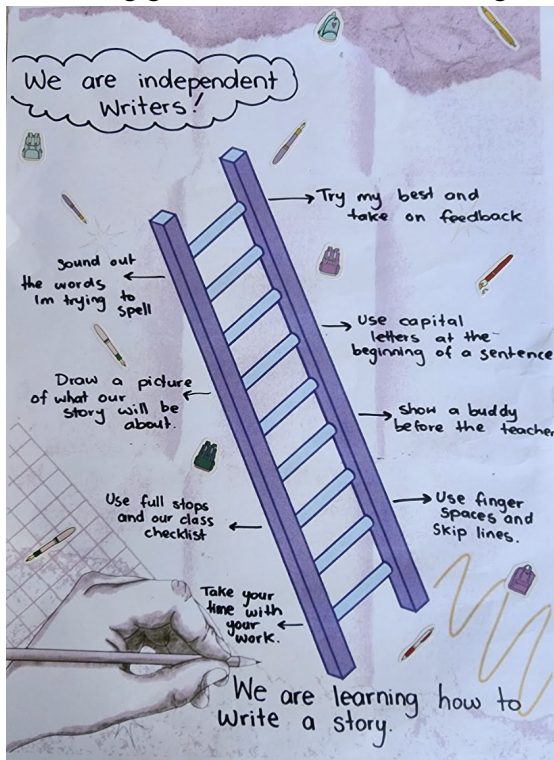 We are independent
Writers!
Try my best and
take on feedback
Sound out
the words
Im trying to
spell
Use capital
letters at the
beginning of a sentence
Draw a picture
of what our
story will be
about.
Show a buddy
before the teacher
Use full stops
and our class
checklist
Use finger
spaces and
Skip lines.
Take your
time with
your
work.
We are learning how to
Write a story.